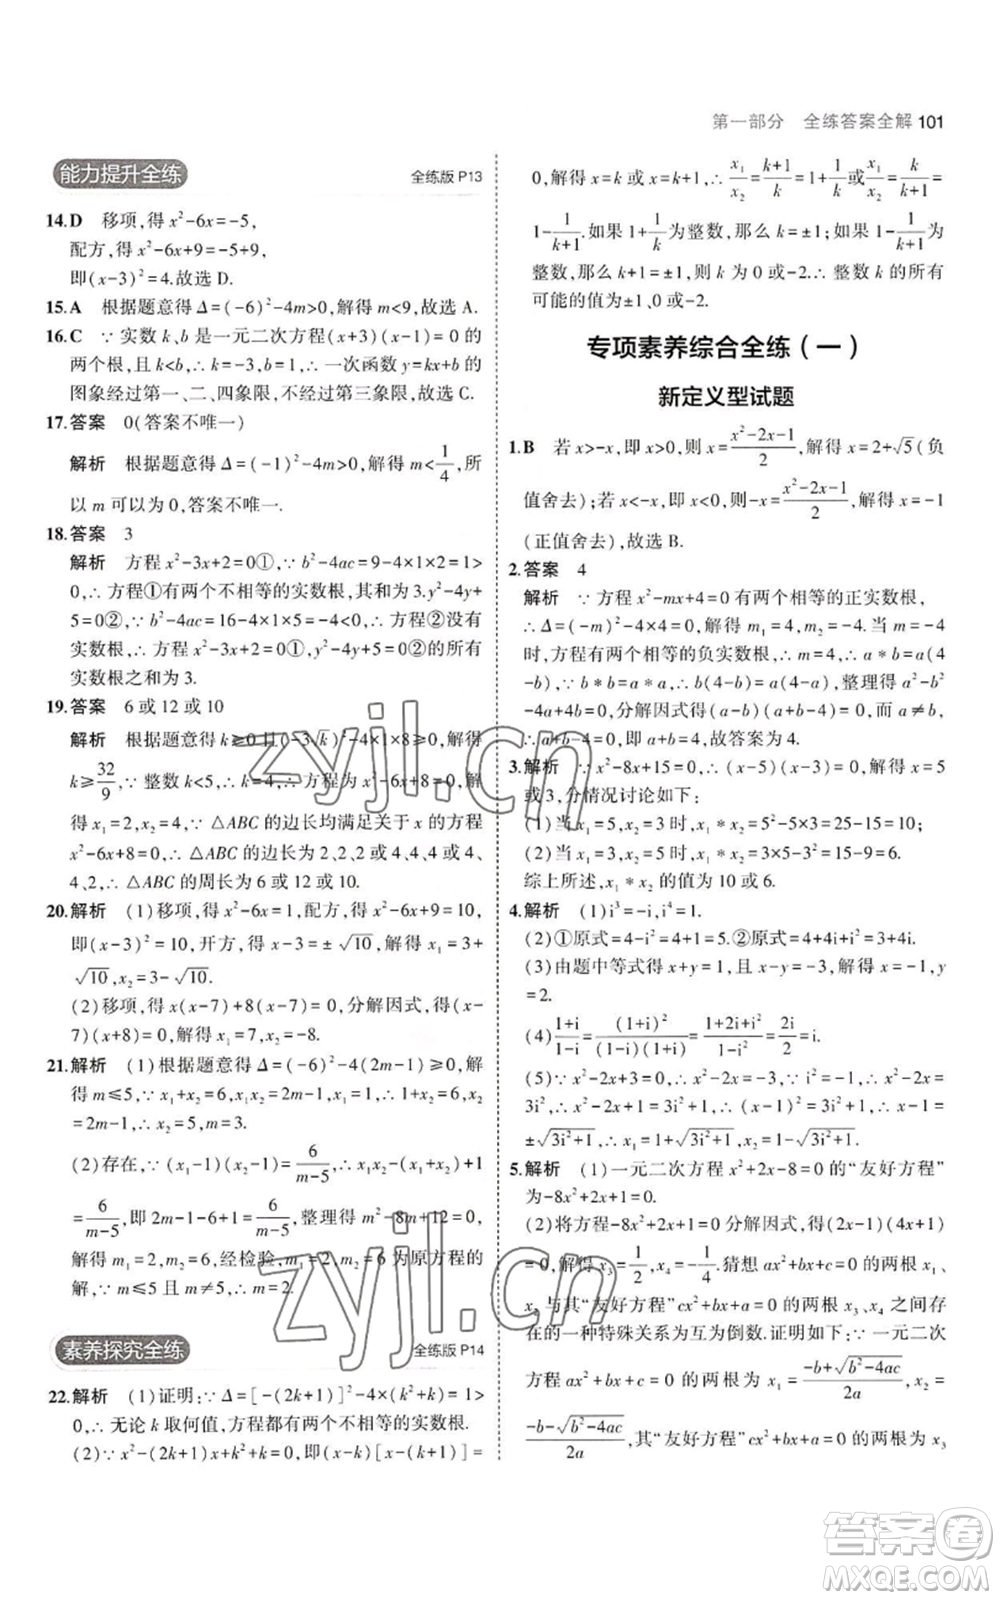 第一部分　全练答案全解 101
能力提升全练　全练版 P13
14.D　移项,得 x²-6x=-5,
配方,得 x²-6x+9=-5+9,
即(x-3)²=4.故选 D.
15.A　根据题意得 Δ=(-6)²-4m>0,解得 m<9,故选 A.
16.C　∵ 实数 k、b 是一元二次方程(x+3)(x-1)=0 的
两个根,且 k<b,∴ k=-3,b=1,∴ 一次函数 y=kx+b 的
图象经过第一、二、四象限,不经过第三象限,故选 C.
17.答案　0(答案不唯一)
解析　根据题意得 Δ=(-1)²-4m>0,解得 m<1/4,所
以 m 可以为 0,答案不唯一.
18.答案　3
解析　方程 x²-3x+2=0①,∵ b²-4ac=9-4×1×2=1>
0,∴ 方程①有两个不相等的实数根,和为 3.y²-4y+
5=0②,∵ b²-4ac=16-4×1×5=-4<0,∴ 方程②没有
实数根,∴ 方程 x²-3x+2=0 与y²-4y+5=0 的所有
实数根之和为 3.
19.答案　6 或 12 或 10
解析　根据题意得 k≥0且(-3√k)²-4×1×8≥0,解得
k≥32/9,∵ 整数 k<5,∴ k=4,∴ 方程为 x²-6x+8=0,解
得 x₁=2,x₂=4,∵ △ABC 的边长均满足关于 x 的方程
x²-6x+8=0,∴ △ABC 的边长为 2、2、2 或 4、4、4 或
4、4、2,∴ △ABC 的周长为 6 或 12 或 10.
20.解析　(1)移项,得 x²-6x=1,配方,得 x²-6x+9=10,
即(x-3)²=10,开方,得 x-3=±√10,∴ x₁=3+
√10,x₂=3-√10.
(2)移项,得 x(x-7)+8(x-7)=0,分解因式,得(x-
7)(x+8)=0,解得 x₁=7,x₂=-8.
21.解析　(1)根据题意得 Δ=(-6)²-4(2m-1)≥0,解
得 m≤5,x₁+x₂=6,x₁x₂=2m-1,x₁=1,∴ 1+x₂=
6,x₂=2m-1,∴ x₂=5,m=3.
(2)存在,∵ (x₁-1)(x₂-1)=6/(m-5),∴ x₁x₂-(x₁+x₂)+1
=6/(m-5),即 2m-1-6+1=6/(m-5),整理得 m²-8m+12=0,
解得 m₁=2,m₂=6,经检验,m₁=2,m₂=6 为原方程的
解,∵ m≤5 且 m≠5,∴ m=2.
素养探究全练　全练版 P14
22.解析　(1)证明:∵ Δ=[-(2k+1)]²-4×(k²+k)=1>
0,∴ 无论 k 取何值,方程都有两个不相等的实数根.
(2)∵ x²-(2k+1)x+k²+k=0,即(x-k)[x-(k+1)]=
0,解得 x=k 或 x=k+1,∴ x₁/x₂=(k+1)/k=1+1/k或x₁/x₂=k/(k+1)=
1-1/(k+1).如果 1+1/k为整数,那么 k=±1;如果 1-1/(k+1)为
整数,那么 k=0 或-2.∴ 整数 k 的所有
可能的值为±1、0 或-2.
专项素养综合全练(一)
新定义型试题
1.B　若 x>-x,即 x>0,则 x=(x²-2x-1)/2,解得 x=2+√5(负
值舍去);若 x<-x,即 x<0,则-x=(x²-2x-1)/2,解得 x=-1
(正值舍去),故选 B.
2.答案　4
解析　∵ 方程 x²-mx+4=0 有两个相等的正实数根,
∴ Δ=(-m)²-4×4=0,解得 m₁=4,m₂=-4.当 m=-4
时,方程有两个相等的负实数根,∴ m=4,∴ a*b=a(4
-b),∵ b*b=a*a,∴ b(4-b)=a(4-a),整理得 a²-b²
-4a+4b=0,分解因式得(a-b)(a+b-4)=0,而 a≠b,
∴ a+b-4=0,即 a+b=4,故答案为 4.
3.解析　∵ x²-8x+15=0,∴ (x-5)(x-3)=0,解得 x=5
或 3,分情况讨论如下:
(1)当 x₁=5,x₂=3 时,x₁*x₂=5²-5×3=25-15=10;
(2)当 x₁=3,x₂=5 时,x₁*x₂=3×5-3²=15-9=6.
综上所述,x₁*x₂ 的值为 10 或 6.
4.解析　(1)i³=-i,i⁴=1.
(2)①原式=4-i²=4+1=5.②原式=4+4i+i²=3+4i.
(3)由题中等式得 x+y=1-x,3=-(-1-y),∴ x=-1,y
=2.
(4)(1+i)/(1-i)=(1+i)²/((1-i)(1+i))=(1+2i+i²)/(1-i²)=2i/2=i.
3i²,∴ x²-2x+1=3i²+1,∴ (x-1)²=3i²+1,∴ x-1=
±√(3i²+1),∴ x₁=1+√(3i²+1),x₂=1-√(3i²+1).
5.解析　(1)一元二次方程 x²+2x-8=0 的“友好方程”
为-8x²+2x+1=0.
(2)将方程-8x²+2x+1=0 分解因式,得(2x-1)(4x+1)
=0,解得 x₃=1/2,x₄=-1/4.猜想 ax²+bx+c=0 的两根 x₁、
x₂ 与其“友好方程”cx²+bx+a=0 的两根 x₃、x₄ 之间存在
的一种特殊关系为互为倒数.证明如下:∵ 一元二次
方程 ax²+bx+c=0 的两根为 x₁=(-b+√(b²-4ac))/2a,x₂=
(-b-√(b²-4ac))/2a,其“友好方程”cx²+bx+a=0 的两根为 x₃
zyjl.cn
zyjl.cn
答案圈
MXQE.COM